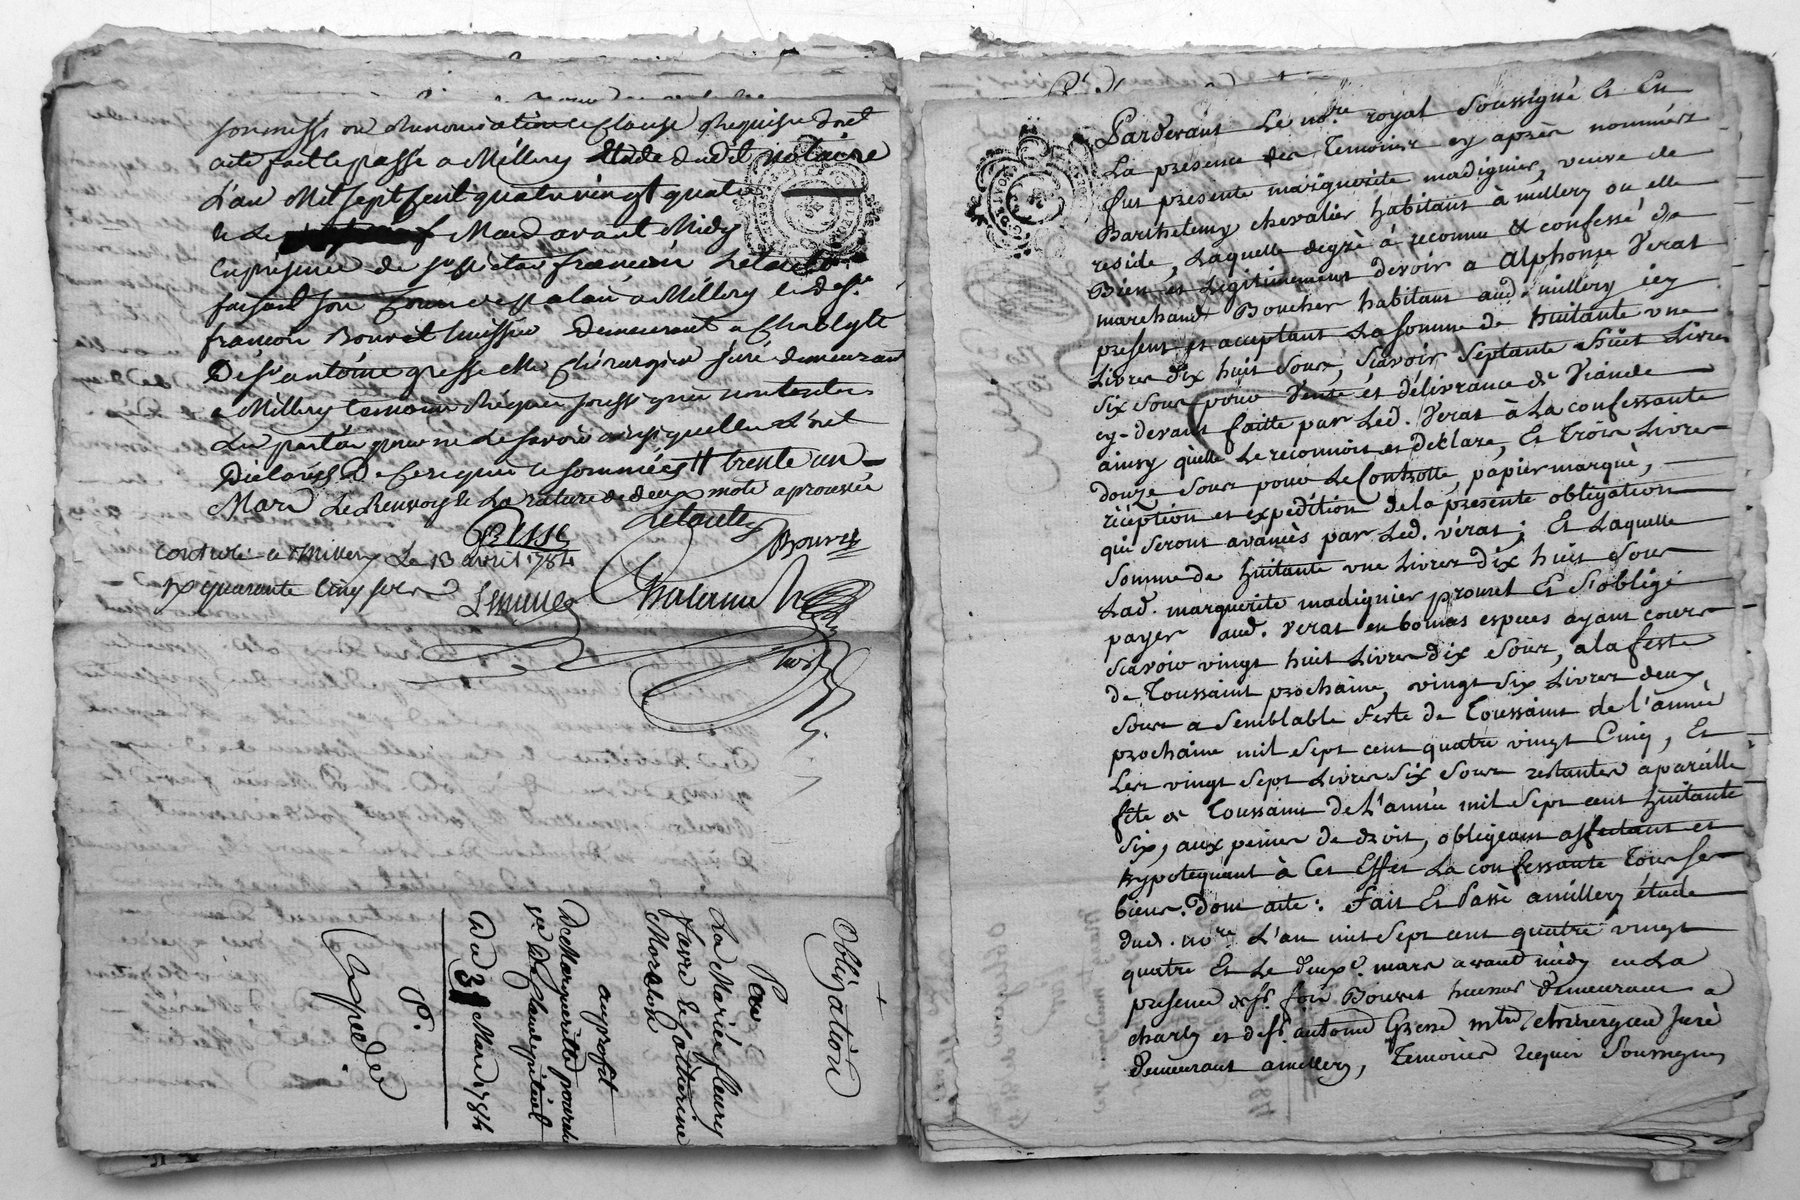 soumission renonciation & Clause Requise dont
acte fait & passé a Millery Etude dudit notaire
L'an Mil sept Cent quatre vingt quatre
& Le Mars avant Midy
En présence de sr françois Letault
faisant son a Millery & de sr
françois Bouret huissier demeurant a Charly &
De sr antoine gresse Me Chirurgien juré demeurant
a Millery temoins Requis soussignés non les
Les parties pour ne le savoir ainsi quelles L'ont
Déclarés De Ce requises & sommées // trente un
Mars Le Renvoy & La rature de deux mots aprouvée
Gresse Letault
Bouret
Controlé a Millery Le 13 avril 1784
Rx quarante Cinq sols
Obligation
Par
La Mariée fleury
favre & Catherine
au profit
De Marguerite
ve De Claude
Du 31 Mars 1784
Expediée
Pardevant Le nore royal Soussigné Et En
La presence des Temoins cy après nommés
fut presente marguerite madignier, veuve de
Barthelemy chevalier habitant à millery ou elle
reside, Laquelle degré à reconnu & confessé
Bien et Légitimement devoir a alphonse Verat
marchand Boucher habitant aud. millery icy
present et acceptant La Somme de huitante une
Livres dix huit Sous, Scavoir Septante Huit Livres
Six Sous pour Vente et délivrance de Viande
cy-devant faitte par Led. Verat à La confessante
ainsy quelle Le reconnoit et Déklare, Et Trois Livres
douze Sous pour Le Controlle, papier marqué,
réception et expédition de la présente obligation
qui Seront avancés par Led. vérat ; Et Laquelle
Somme de huitante une Livres Dix huit Sous
Lad. marguerite madignier promet Et S'oblige
payer aud. Verat en bonnes especes ayant cours
Scavoir vingt huit Livres dix Sous, a la feste
de Toussaint prochaine, vingt Six Livres deux
Sous a Semblable feste de Toussaint de l'année
prochaine mil Sept cent quatre vingt Cinq, Et
Les vingt Sept Livres Six Sous restantes a pareille
fête de Toussaint de L'année mil Sept cent huitante
Six, aux peines de droit, obligeant affectant et
hypotequant à Cet Effet La confessante Tous Ses
biens. Dont acte : Fait Et Passé a millery étude
dud. nore L'an mil Sept cent quatre vingt
quatre Et Le deuxe mars avant midy en La
presence de sr fois Bouret huissier demeurant a
charly et de sr antoine Gresse mtre chirurgien Juré
demeurant a millery, Temoins requis Soussignés